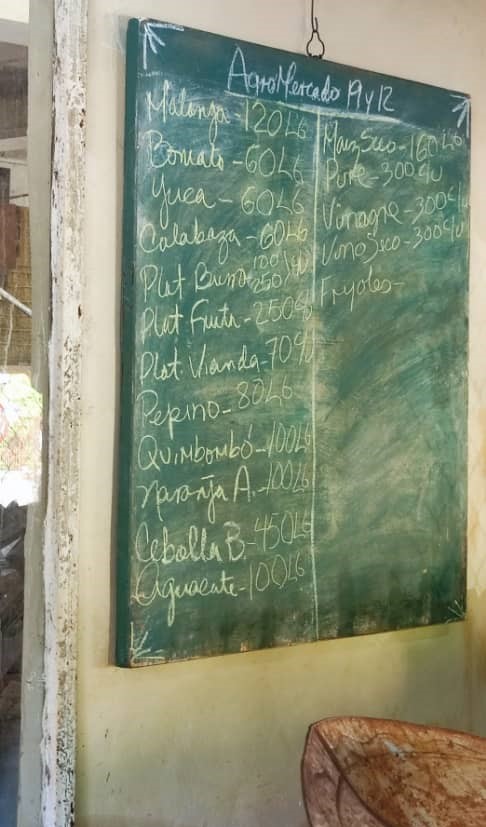 AgroMercado 19 y 12
Malanga - 120 Lb
Boniato - 60 Lb
Yuca - 60 Lb
Calabaza - 60 Lb
Plat Burro 100 250
Plat Fruta - 250 c/u
Plat. Vianda - 70 c/u
Pepino - 80 Lb
Quimbombó - 100 Lb
Naranja A. - 100 Lb
Cebolla B. - 450 Lb
Aguacate - 100 Lb
Maiz Seco - 160 Lb
Pure - 300 c/u
Vinagre - 300 c/u
Vino Seco - 300 c/u
Frijoles -